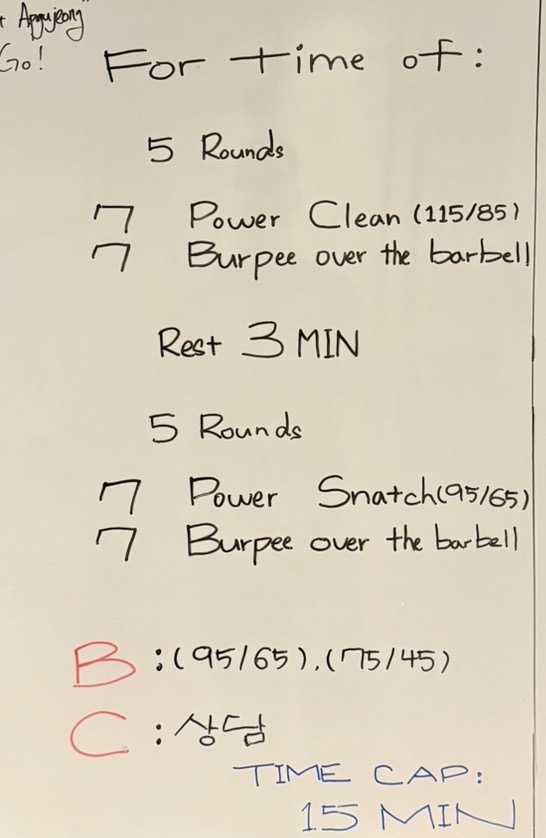 Apgujeong"
Go!
For time of:
5 Rounds
7 Power Clean (115/85)
7 Burpee over the barbell
Rest 3 MIN
5 Rounds
7 Power Snatch (95/65)
7 Burpee over the barbell
B : (95/65), (75/45)
C : 상담
TIME CAP:
15 MIN